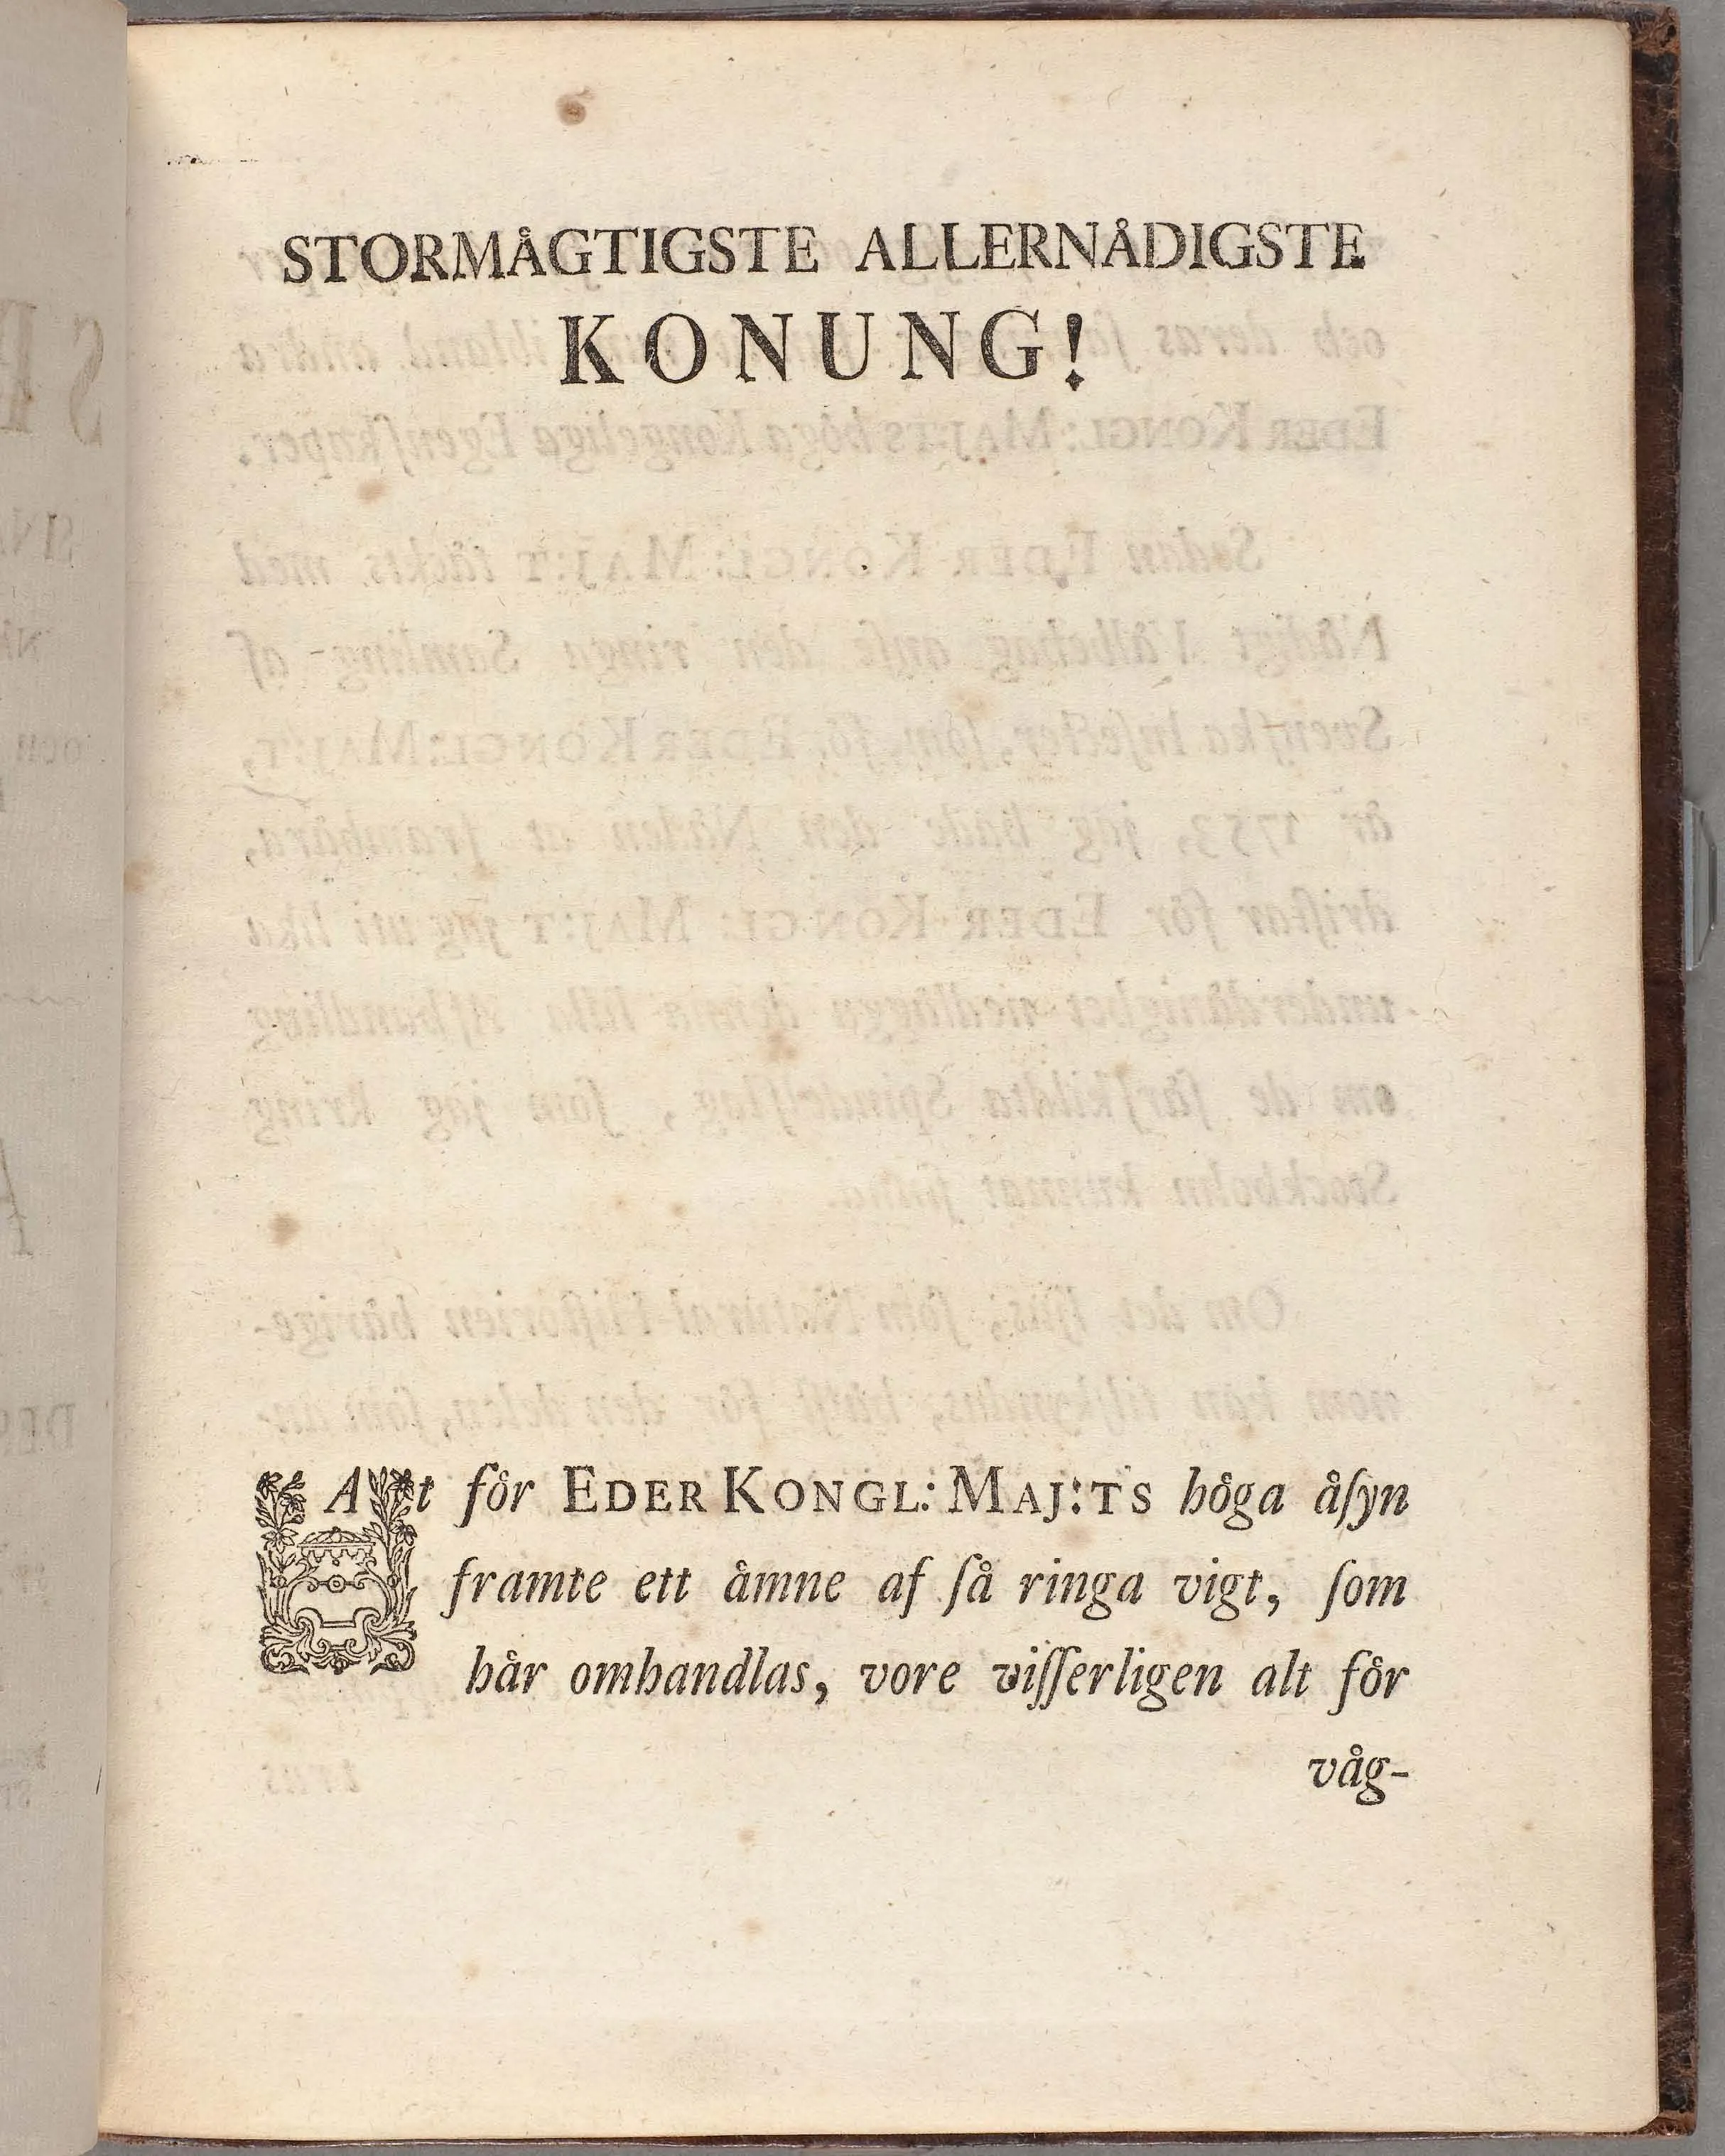 STORMÅGTIGSTE ALLERNÅDIGSTE
KONUNG!
At för EDER KONGL: MAJ:TS höga åſyn
framte ett åmne af ſå ringa vigt, ſom
hår omhandlas, vore viſſerligen alt för
våg-